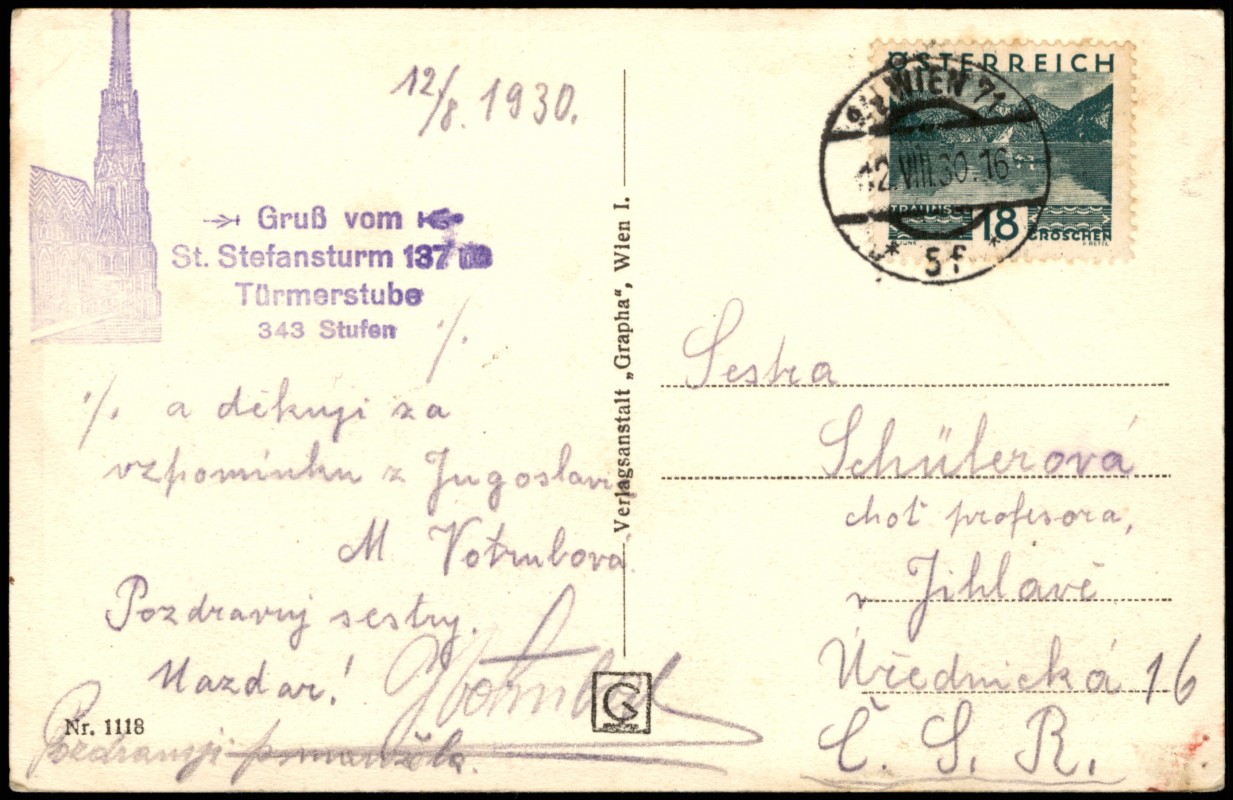 12/8. 1930.
Gruß vom
St. Stefansturm 137 m
Türmerstube
343 Stufen
·/.
·/. a děkuji za
vzpomínku z Jugoslavie
M Votrubová.
Pozdravuj sestry.
Nazdar!
Votrubová
Nr. 1118
Pozdravuji
Verlagsanstalt „Grapha", Wien I.
G
ÖSTERREICH
TRAUNSEE
18 GROSCHEN
WIEN 71
12.VIII.30.16
* 5f *
Sestra
Schülerová
choť profesora,
v Jihlavě
Úřednická 16
Č. S. R.